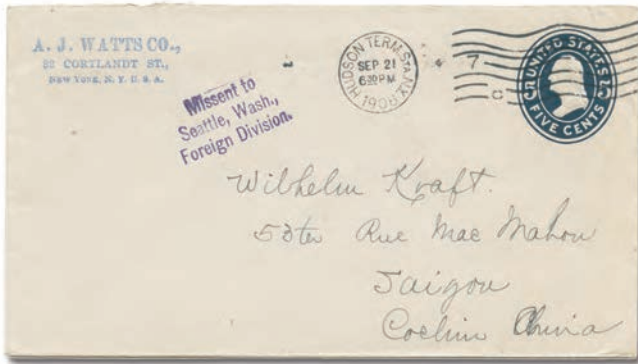 A. J. WATTS CO.,
22 CORTLANDT ST.,
NEW YORK, N. Y. U. S. A.
Missent to
Seattle, Wash.,
Foreign Division.
HUDSON TERM. STA. N.Y.
SEP 21
630 PM
7
C
UNITED STATES
5 5
FIVE CENTS
Wilhelm Kraft.
53ter Rue Mac Mahon
Saigon
Cochin China